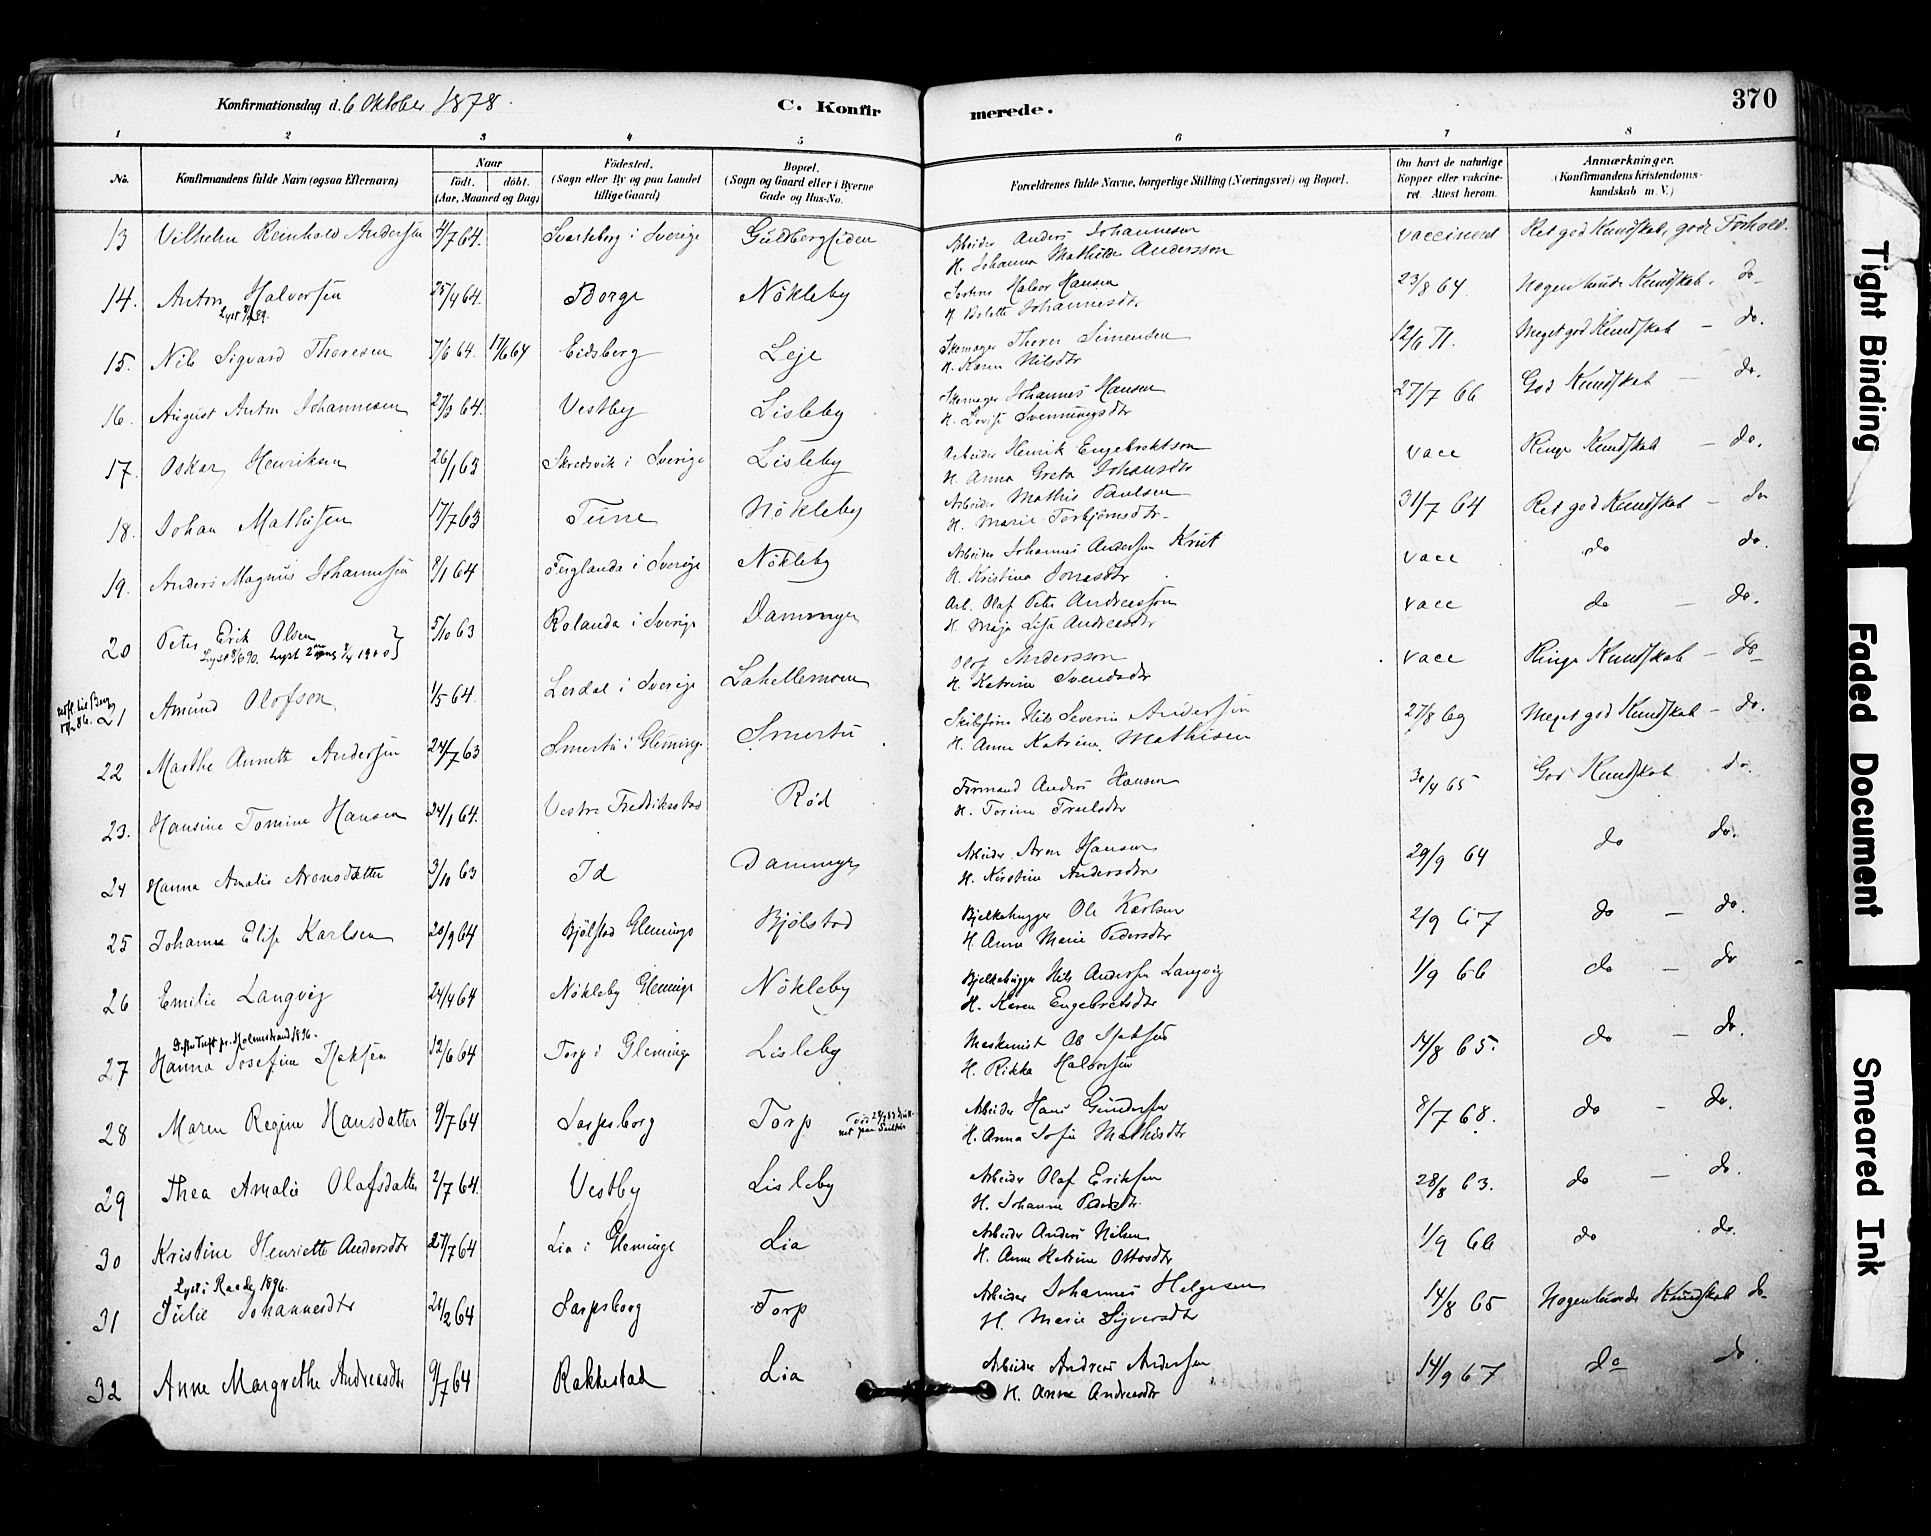 Konfirmationsdag d. 6 Oktober 1878.
C. Konfir
merede.
370
1 2 3 4 5 6 7 8
No.
Konfirmandens fulde Navn (ogsaa Efternavn)
Naar
født. døbt.
(Aar, Maaned og Dag)
Fødested.
(Sogn eller By og paa Landet
tillige Gaard)
Bopæl.
(Sogn og Gaard eller i Byerne
Gade og Hus-No.
Forældrenes fulde Navne, borgerlige Stilling (Næringsvei) og Bopæl.
Om havt de naturlige
Kopper eller vakcine-
ret. Attest herom.
Anmærkninger.
(Konfirmandens Kristendoms-
kundskab m. V.)
13 Vilhelm Reinhold Andersen 4/7 64. Svarteborg i Sverige Guldbergsiden Arbeider Anders Johannesen vaccineret Ret god Kundskab, godt Forhold.
H. Johanna Mathilde Andersson
14. Anton Halvorsen 25/4 64. Borge Nökleby Halvor Hansen 23/8 64. Nogenlunde Kundskab. do
H. Bolette Johannesdtr
15. Nils Sigvard Thoresen 7/6 64. 17/6 64 Eidsberg Leje Skomager Thorer Simensen 12/6 71. Meget god Kundskab – do.
H. Karen Nilsdtr
16. August Anton Johannesen 27/3 64. Vestby Lisleby Skomager Johannes Hansen 27/7 66 God Kundskab – do.
H. Lovise Svenningsdtr
17. Oskar Henriksen 26/1 63 Skredsvik i Sverige Lisleby Arbeider Henrik Engebrektson vacc Ringe Kundskab – do.
H. Anna Greta Johansdtr
18. Johan Mathisen 17/7 63 Tune Nökleby Arbeider Mathis Paulsen 31/7 64 Ret god Kundskab – do
H. Marie Torbjørnsdtr.
19. Anders Magnus Johannesen 8/1 64 Ferglanda i Sverige Nökleby Arbeider Johannes Andersen Krut vacc do do.
H. Kristina Jonasdtr
20 Peter Erik Olsen 5/10 63 Rolanda i Sverige Dammyr Arb. Olaf Peter Andreasson vacc do – do.
Lyst 8/6 90. Lyst 2den gang 8/4 1900 H. Maja Lisa Andreasdtr
21 Amund Olofson 1/5 64. Lerdal i Sverige Lahellemoen Olof Andersson vacc Ringe Kundskab – do
H. Katrine Svendsdtr
22 Marthe Annette Andersen 24/7 63 Smertu i Glemminge Smertu Nils Severin Andersen 27/8 69 Meget god Kundskab – do.
H. Anne Katrine Mathisen
23. Hansine Tomine Hansen 24/1 64. Vestre Fredrikstad Röd Formand Anders Hansen 30/4 65 God Kundskab do.
H. Torine Truelsdtr
24 Hanna Amalie Aronsdatter 3/10 63 Id Dammyr Arbeider Aron Hansen 29/9 64 do do.
H. Kirstine Andersdtr
25 Johanne Elise Karlsen 20/9 64 Bjölstad Glemminge Bjölstad Bjelkehugger Ole Karlsen 2/9 67 do – do.
H. Anne Marie Pedersdtr
26 Emilie Langvig 24/4 64 Nökleby Glemminge Nökleby Bjelkehugger Nils Andersen Langvig 1/9 66 do – do
H. Karen Engebretsdtr
27 Hanna Josefine Isaksen 12/6 64 Torp i Glemminge Lisleby Maskinist Ole Isaksen 14/8 65. do – do.
H. Rikka Halvorsen
28 Maren Regine Hansdatter 9/7 64 Sarpsborg Torp Arbeider Hans Gundersen 8/7 68. do – do.
H. Anna Sofie Mathisdtr
29 Thea Amalie Olafsdatter 2/7 64. Vestby Lisleby Arbeider Olaf Eriksen 28/8 63. do – do.
H. Johanne Pedersdtr
30 Kristine Henriette Andersdtr 27/7 64 Lia i Glemminge Lia Arbeider Anders Nilsen 1/9 66 do do.
H. Anne Katrine Ottosdtr
Lyst i Raade 1896.
31 Julie Johannesdtr 21/2 64 Sarpsborg Torp Arbeider Johannes Helgesen 14/8 65 Nogenlunde Kundskab do
H. Marie Syversdtr
32 Anne Margrethe Andreasdtr 9/7 64 Rakkestad Lia Arbeider Andreas Andersen 14/9 67 do do.
H. Anne Andreasdtr
Tight Binding
Faded Document
Smeared Ink